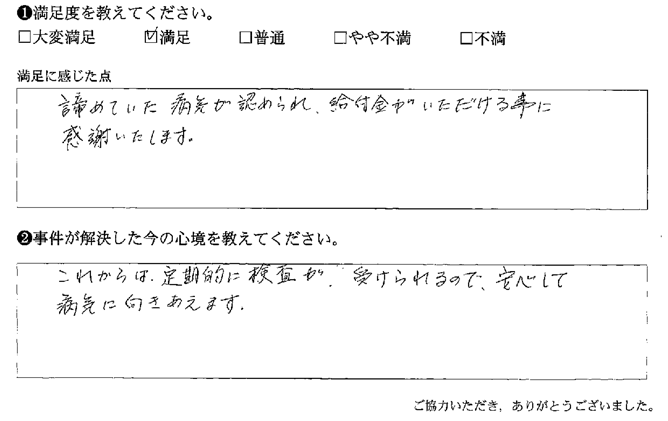 ❶満足度を教えてください。
□大変満足 ☑満足 □普通 □やや不満 □不満
満足に感じた点
諦めていた病気が認められ、給付金がいただける事に
感謝いたします。
❷事件が解決した今の心境を教えてください。
これからは、定期的に検査が、受けられるので、安心して
病気に向きあえます。
ご協力いただき，ありがとうございました。